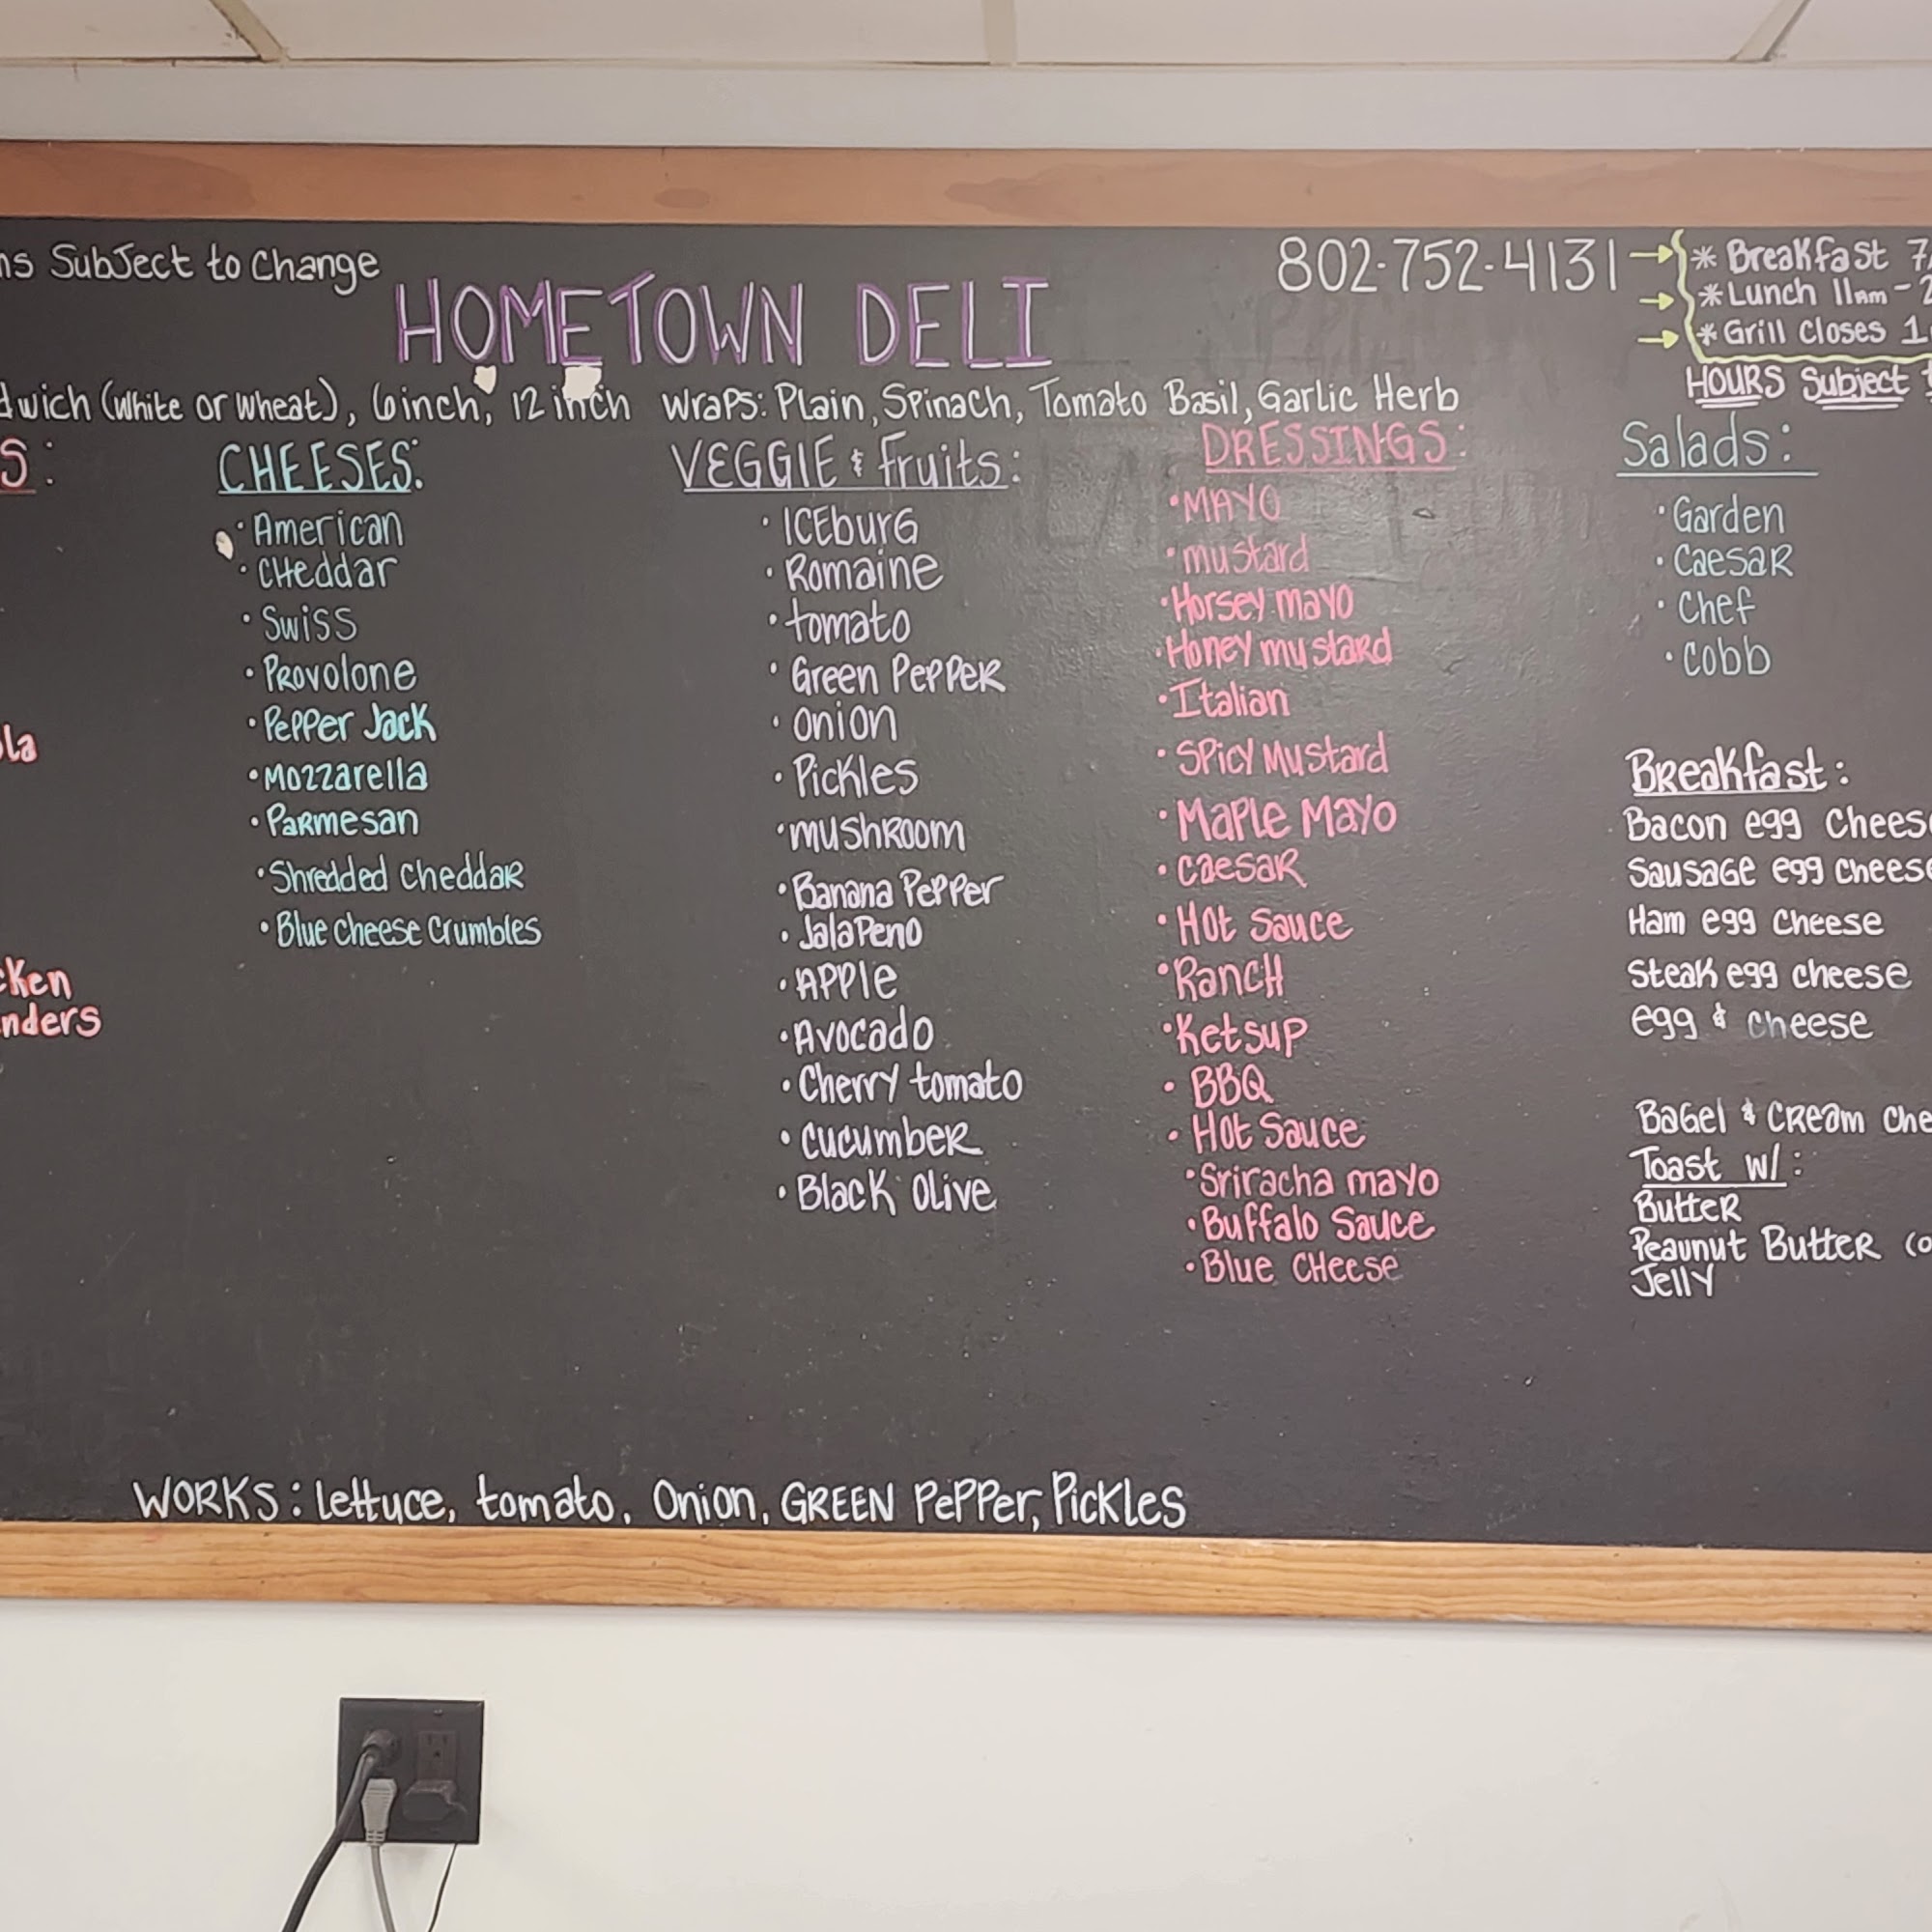 Subject to Change
802-752-4131
* Breakfast
* Lunch 11am -
* Grill Closes
HOURS Subject
HOMETOWN DELI
(White or wheat), 6inch, 12 inch wraps: Plain, Spinach, Tomato Basil, Garlic Herb
CHEESES:
• American
• CHeddar
• Swiss
• Provolone
• Pepper Jack
• Mozzarella
• Parmesan
• Shredded Cheddar
• Blue cheese Crumbles
VEGGIE & fruits:
• ICEburG
• Romaine
• tomato
• Green Pepper
• Onion
• Pickles
• mushroom
• Banana Pepper
• JalaPeno
• APPle
• Avocado
• Cherry tomato
• Cucumber
• Black Olive
DRESSINGS:
• MAYO
• mustard
• Horsey mayo
• Honey mustard
• Italian
• Spicy Mustard
• Maple Mayo
• Caesar
• Hot Sauce
• Ranch
• Ketsup
• BBQ
• Hot Sauce
• Sriracha mayo
• Buffalo Sauce
• Blue CHeese
Salads:
• Garden
• Caesar
• Chef
• Cobb
Breakfast:
Bacon egg
Sausage egg
Ham egg Cheese
Steak egg cheese
egg & cheese
Bagel & Cream
Toast w/:
Butter
Peaunut Butter
Jelly
WORKS: lettuce, tomato, Onion, GREEN PePPer, Pickles